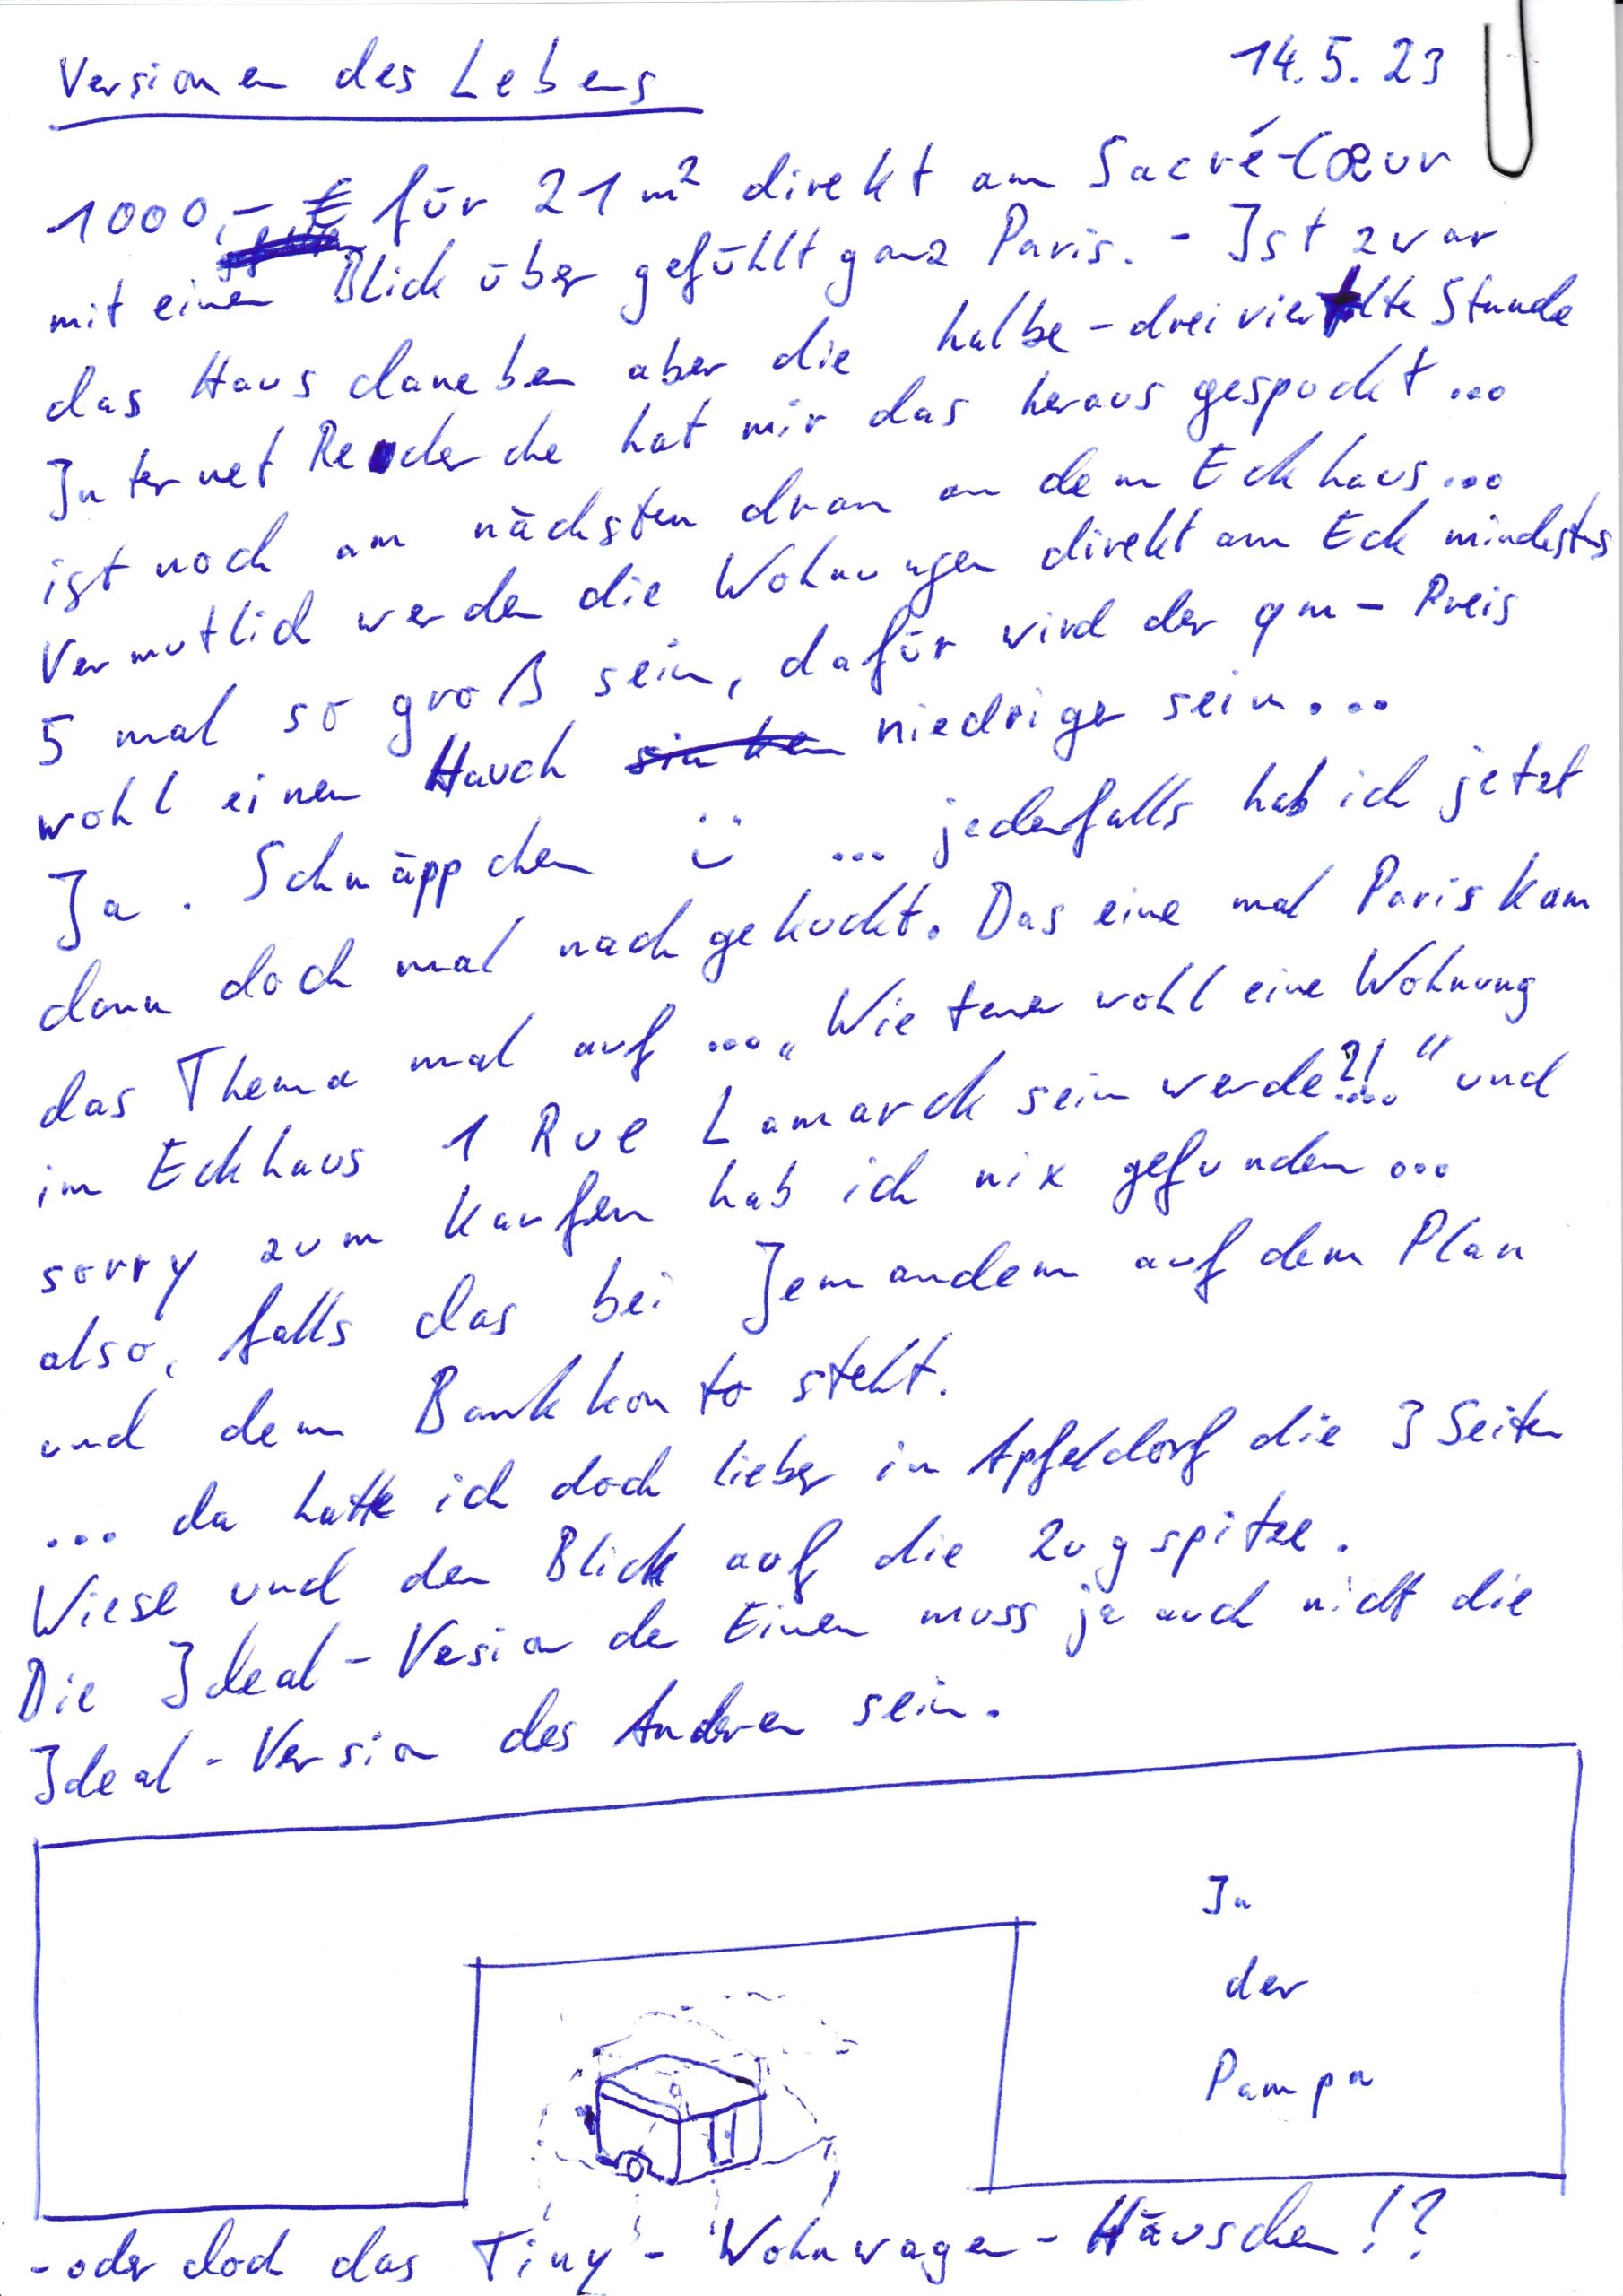 Versionen des Lebens 14.5.23
1000,- € für 21 m² direkt am Sacré-Cœur
mit einen Blick über gefühlt ganz Paris. - Ist zwar
das Haus daneben aber die halbe - dreiviertelte Stunde
Internet Recherche hat mir das heraus gespuckt ...
ist noch am nächsten dran an dem Eckhaus...
Vermutlich werden die Wohnungen direkt am Eck mindestens
5 mal so groß sein, dafür wird der qm - Preis
wohl einen Hauch sinken niedriger sein...
Ja. Schnäppchen ... jedenfalls hab ich jetzt
dann doch mal nach gekuckt. Das eine mal Paris kam
das Thema mal auf ... „Wie teuer wohl eine Wohnung
im Eckhaus 1 Rue Lamarck sein werde?!..." und
sorry zum Kaufen hab ich nix gefunden ...
also, falls das bei Jemandem auf dem Plan
und dem Bankkonto steht.
... da hatte ich doch lieber in Apfeldorf die 3 Seiten
Wiese und den Blick auf die Zugspitze.
Die Ideal - Vesion de Einen muss ja auch nicht die
Ideal - Version des Anderen sein.
In
der
Pampa
- oder doch das Tiny - Wohnwagen - Häuschen!?